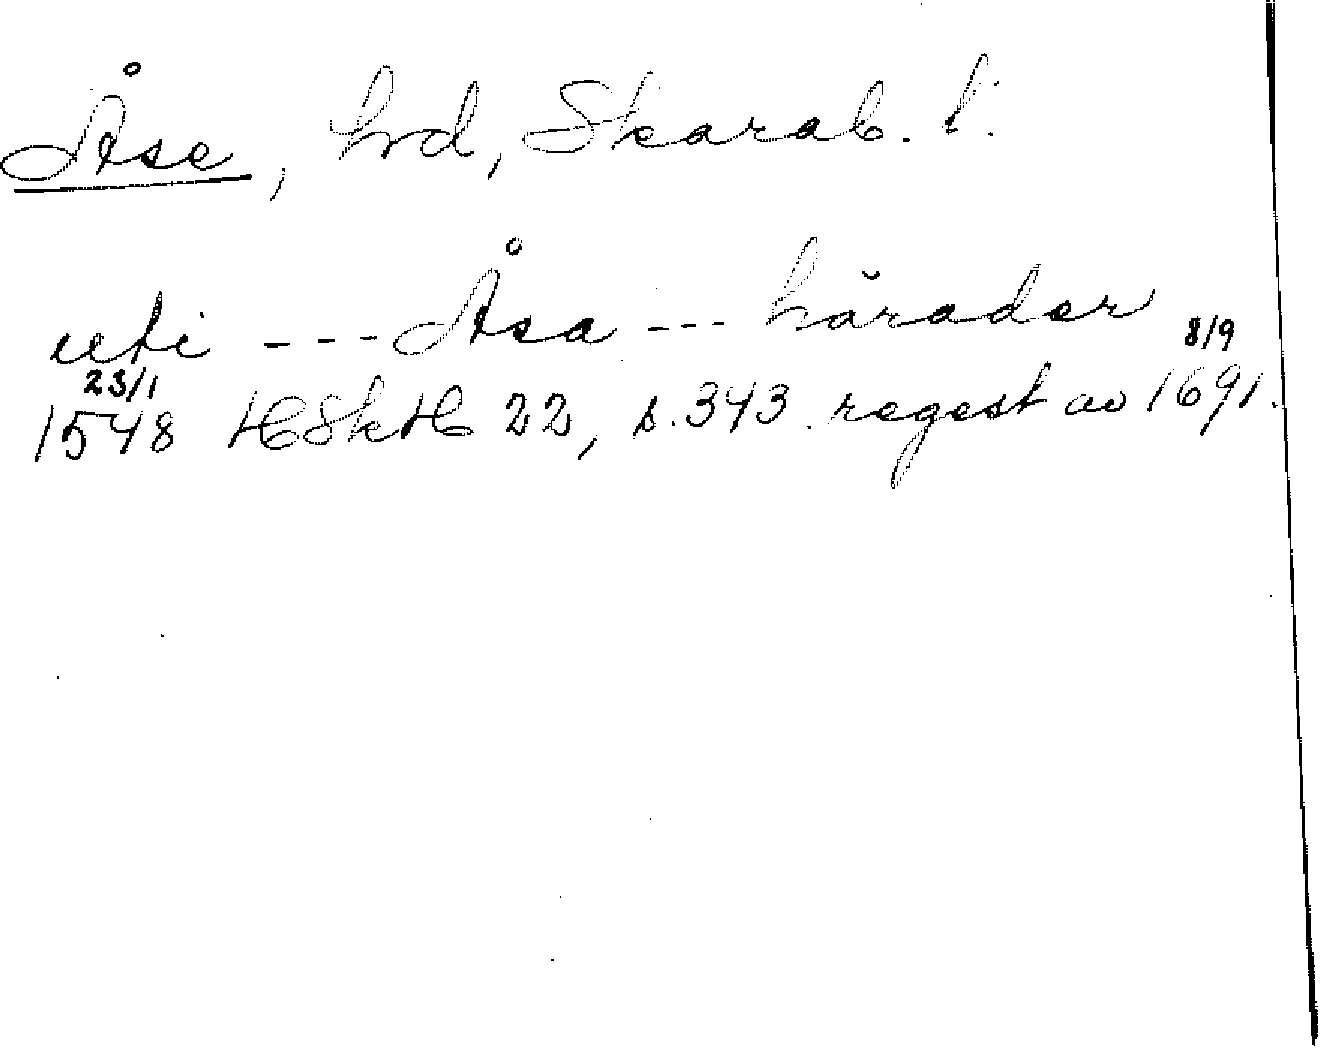 Åse, hrd, Skarab. l.
uti --- Åsa --- härader
23/1 8/9
1548 HSkH 22, s. 343. regest av 1691.